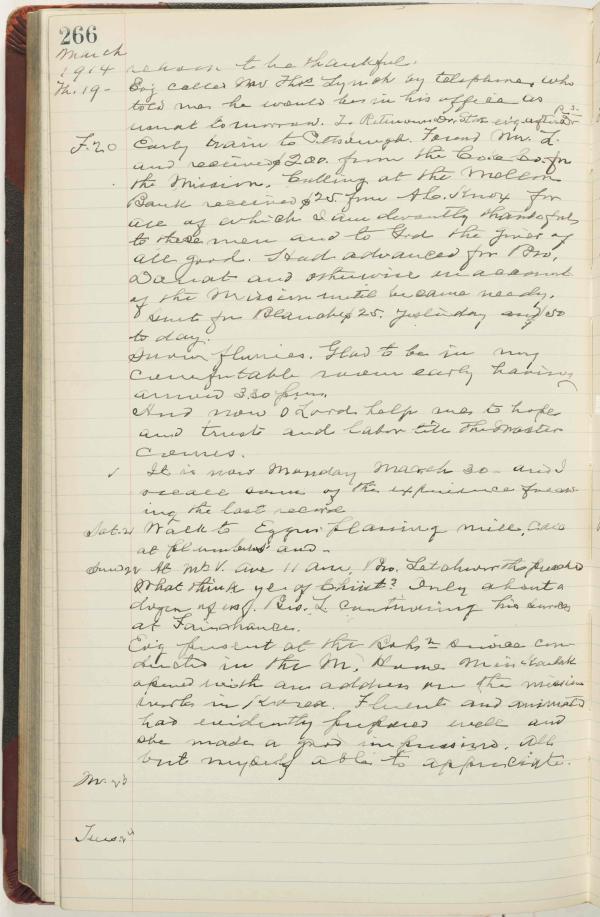 266
March
1914 reason to be thankful.
Th. 19 - Evg called Mr Thos Lynch by telephone, who
told me he would be in his office as
usual tomorrow.
F. 20 Early train to Pittsburgh. Found Mr. L.
and received $200. from the Coke Co. for
the Mission. Calling at the Mellon
Bank received $25 from A.C. Knox for
all of which I am devoutly thankful
to these men and to God the giver of
all good. Had advanced for Bro.
and otherwise on account
of the Mission until became needy.
Sent for Blanche $25. yesterday and 50
to day.
Snow flurries. Glad to be in my
comfortable room early having
arrived 3.30 p.m.
And now O Lord help me to hope
and trust and labor till the Master
comes.
It is now Monday March 30 - and I
recall some of the experience follow
ing the last record
Sat. 21 Walk to planing mill, Call
at plumbers and -
Sun 22 At Mt V. Ave 11 am, Bro. Letchworth preachd
What think ye of Christ? Only about a
dozen of us. Bro. L. continuing his
at Fairchance.
Evg present at the service con
ducted in the M. Home. Miss
opened with an address on the mission
work in Korea. Fluent and animated
had evidently prepared well and
she made a good impression. All
but myself able to appreciate.
M. 23
Tues. 24